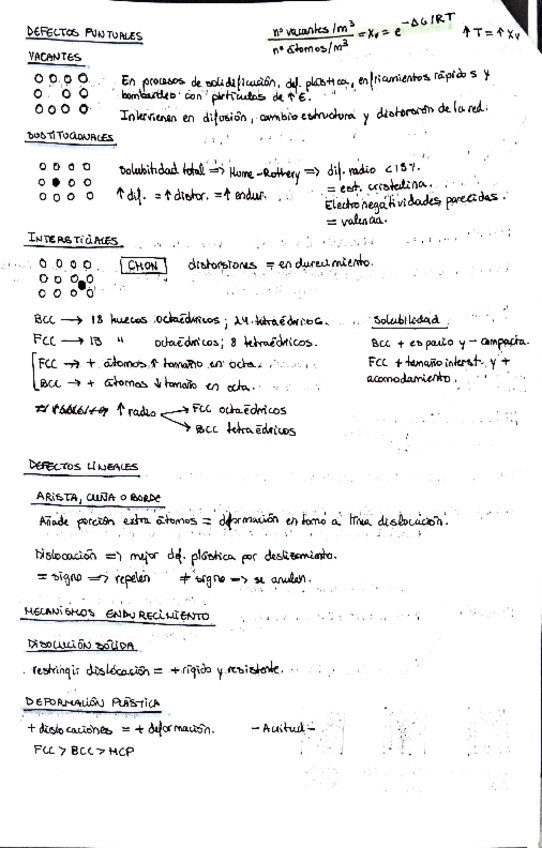 DEFECTOS PUNTUALES
nº vacantes/m³ / nº átomos/m³ = Xv = e^-ΔG/RT ↑T = ↑Xv
VACANTES
En procesos de solidificación, def. plástica, enfriamientos rápidos y
bombardeo con partículas de ↑E.
Intervienen en difusión, cambio estructura y distorsión de la red.
SUSTITUCIONALES
Solubilidad total => Hume-Rothery => dif. radio <15%.
= est. cristalina.
↑ dif. = ↑ distor. = ↑ endur.
Electronegatividades parecidas.
= valencia.
INTERSTICIALES
CHON distorsiones = endurecimiento.
BCC → 18 huecos octaédricos; 24 tetraédricos.
Solubilidad
FCC → 13 " octaédricos; 8 tetraédricos.
BCC + espacio y - compacta.
FCC → + átomos ↑ tamaño en octa.
FCC + tamaño interst. y +
BCC → + átomos ↓ tamaño en octa.
acomodamiento.
↑ radio → FCC octaédricos
→ BCC tetraédricos
DEFECTOS LINEALES
ARISTA, CUÑA O BORDE
Añade porción extra átomos = deformación en torno a línea dislocación.
Dislocación => mejor def. plástica por deslizamiento.
= signo => repelen ≠ signo => se anulan.
MECANISMOS ENDURECIMIENTO
DISOLUCIÓN SÓLIDA
restringir dislocación = + rígido y resistente.
DEFORMACIÓN PLÁSTICA
+ dislocaciones = + deformación. - Acritud -
FCC > BCC > HCP